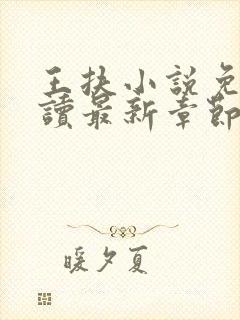 王扶小說免
讀最新章節
暖夕夏